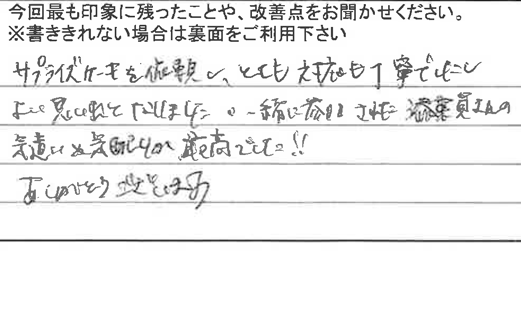 今回最も印象に残ったことや、改善点をお聞かせください。
※書ききれない場合は裏面をご利用下さい
サプライズケーキを依頼し、とても対応も丁寧でしたし
よい思い出となりました。一緒に参加された添乗員さんの
気遣いや気配りが最高でした!!
ありがとうございます